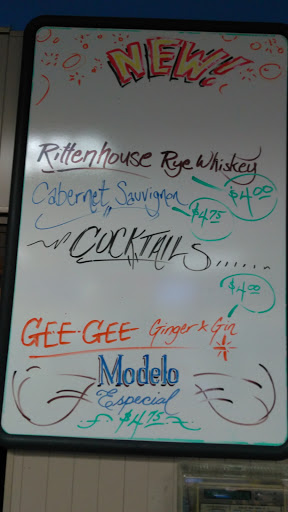 NEW!!
Rittenhouse Rye Whiskey
$4.00
Cabernet Sauvignon
$4.75
COCKTAILS......
$4.00
GEE-GEE Ginger & Gin
Modelo
Especial
$4.75